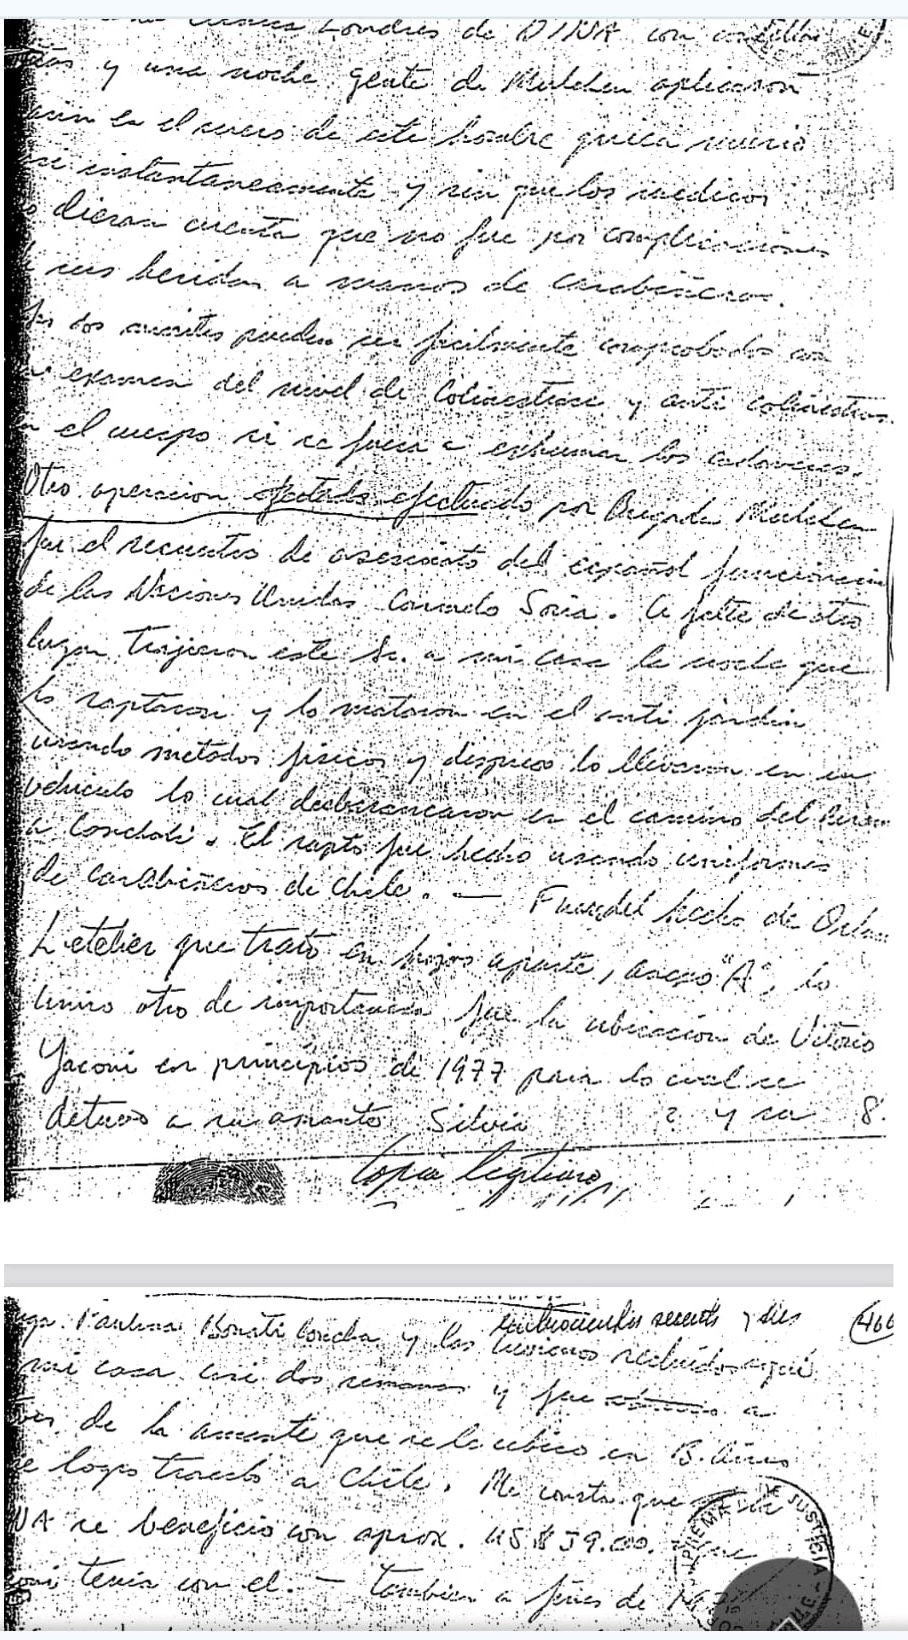 Londres de DINA con
y una noche gente de Mulchen aplicaron
en el suero de este hombre quien murio
instantaneamente y sin que los medicos
dieran cuenta que no fue por complicaciones
sus heridas a manos de Carabineros.
dos muertes pueden ser facilmente comprobados con
examen del nivel de Colinestrasa y anti colinestras
el cuerpo si se fuera a exhumar los cadaveres.
Otro operacion efectuado por Brigada Mulchen
fue el secuestro de asesinato del español funcionario
de las Naciones Unidas Carmelo Soria. A falte de otro
lugar trajeron este Sr. a mi casa la noche que
lo raptaron y lo mataron en el anti jardin
usando metodos fisicos y despues lo llevaron en un
vehiculo lo cual desbarrancaron en el camino del
a Conchali. El rapto fue hecho usando uniformes
de carabineros de Chile. — Fuera del hecho de Orlan
Letelier que trato en hojas aparte, anexo "A", lo
unico otro de importancia fue la ubicacion de Vitorio
Yaconi en principios de 1977 para lo cual se
detuvo a su amante Silvia ? y su 8.
Copia legitima
Paulina Bonati Concha y las
tuvieron recluidos aqui
466
mi casa casi dos semanas y fue a
de la amante que se le ubico en B. Aires
se logro traerlo a Chile. Me consta que
NA se beneficio con aprox. US$ 59.00. que
coni tenia con el. — Tambien a fines de
DE JUSTICIA